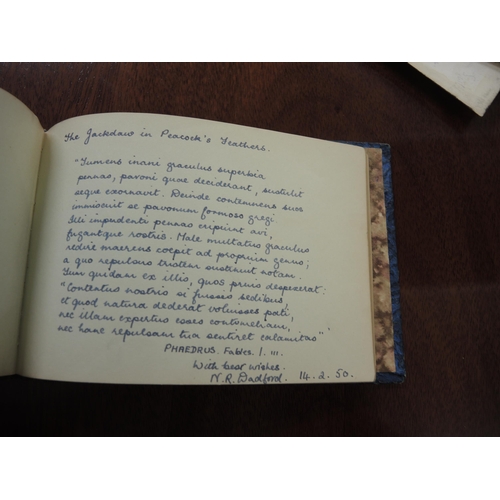 The Jackdaw in Peacock's Feathers.
"Tumens inani graculus superbia
pennas, pavoni quae deciderant, sustulit
seque exornavit. Deinde contemnens suos
immiscuit se pavonum formoso gregi
Illi impudenti pennas eripiunt avi,
fugantque rostris. Male multatus graculus
redire maerens coepit ad proprium genus;
a quo repulsus tristem sustinuit notam.
Tum quidam ex illis, quos prius despexerat:
"Contentus nostris si fuisses sedibus,
et quod natura dederat voluisses pati,
nec illam expertus esses contumeliam,
nec hanc repulsam tua sentiret calamitas"
PHAEDRUS. Fables. I. III.
With best wishes.
N.R. 14.2.50.